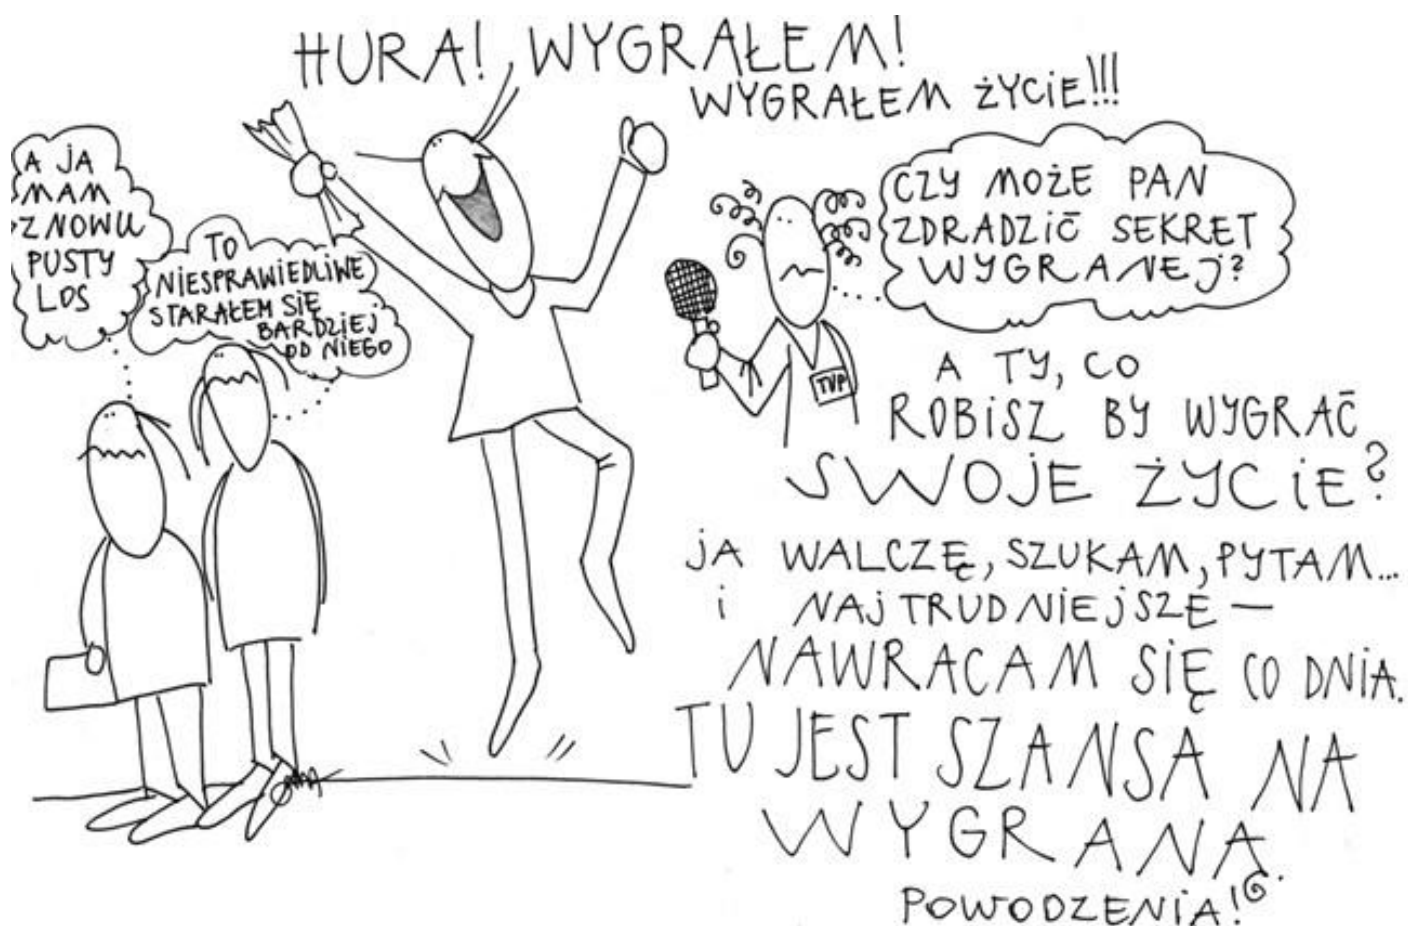 HURA! WYGRAŁEM!
WYGRAŁEM ŻYCIE!!!
A JA
MAM
ZNOWU
PUSTY
LOS
TO
NIESPRAWIEDLIWE
STARAŁEM SIĘ
BARDZIEJ
OD NIEGO
CZY MOŻE PAN
ZDRADZIĆ SEKRET
WYGRANEJ?
TVP
A TY, CO
ROBISZ BY WYGRAĆ
SWOJE ŻYCIE?
JA WALCZĘ, SZUKAM, PYTAM...
i NAJTRUDNIEJSZE —
NAWRACAM SIĘ CO DNIA.
TU JEST SZANSA NA
WYGRANĄ.
POWODZENIA!